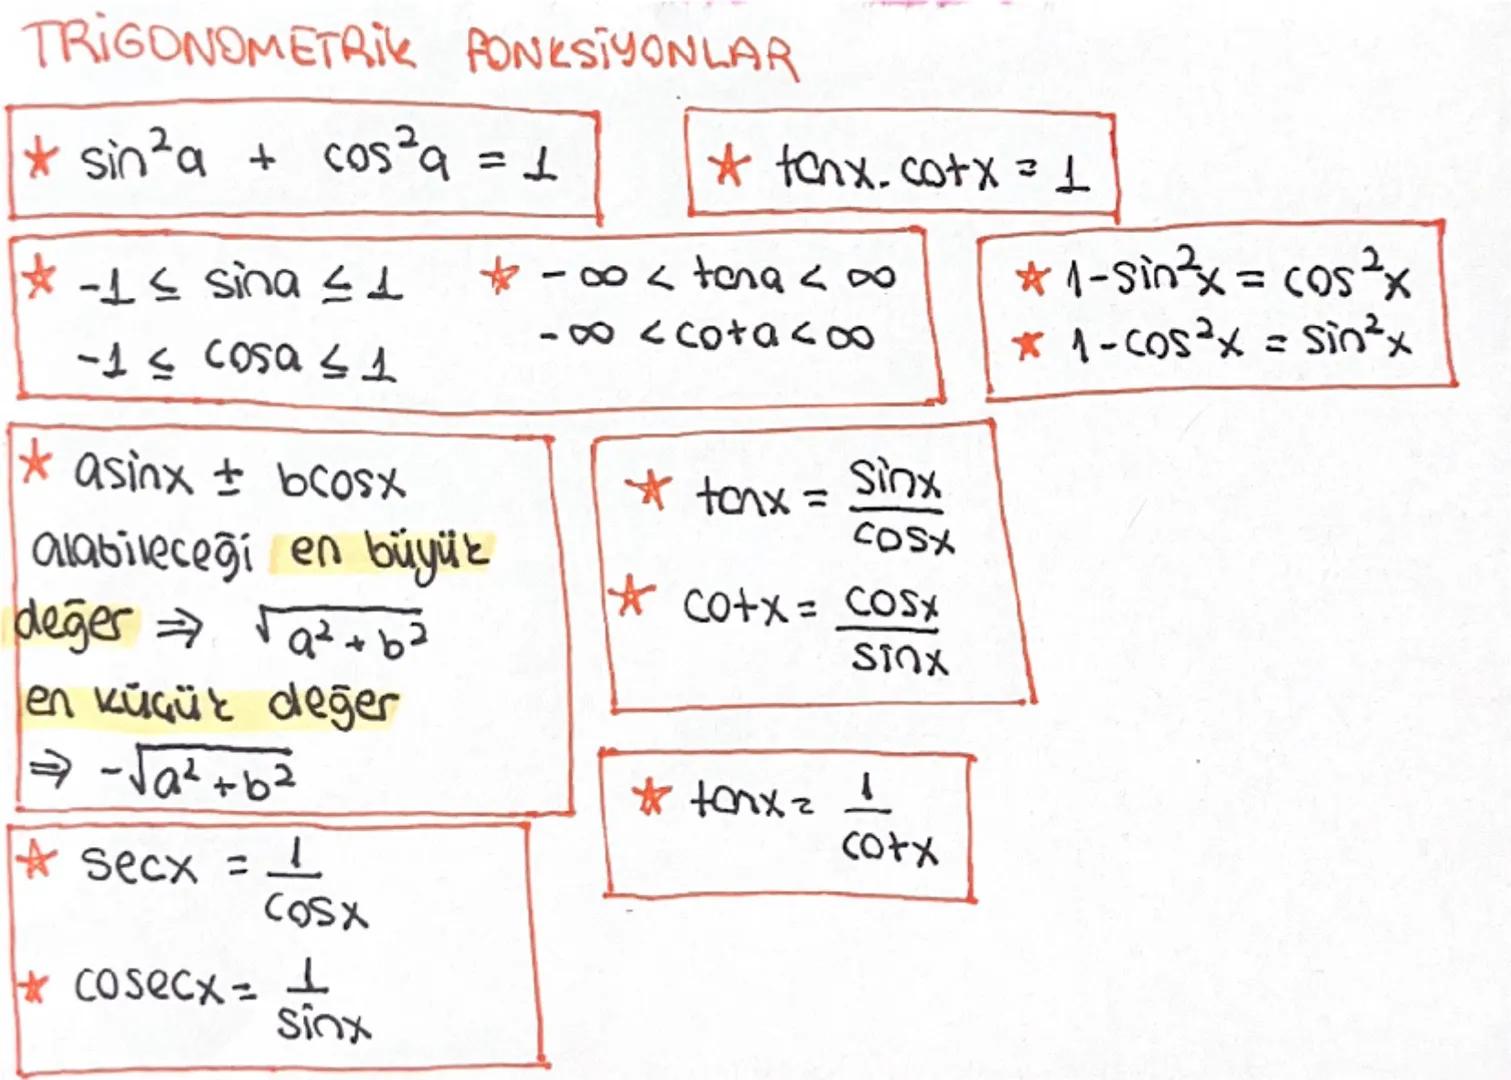 TRİGONOMETRİK FONKSİYONLAR
★ sin²a + cos²a = 1
★ tanx.cotx = 1
★ -1 ≤ sina ≤ 1
-1 ≤ cosa ≤ 1
★ -∞ < tana < ∞
-∞ < cota < ∞
★ 1-sin²x = cos²x
★ 1-cos²x = sin²x
★ asinx ± bcosx
alabileceği en büyük
değer ⇒ √a²+b²
en küçük değer
⇒ -√a²+b²
★ tanx = sinx/cosx
★ cotx = cosx/sinx
★ tanx = 1/cotx
★ secx = 1/cosx
★ cosecx = 1/sinx